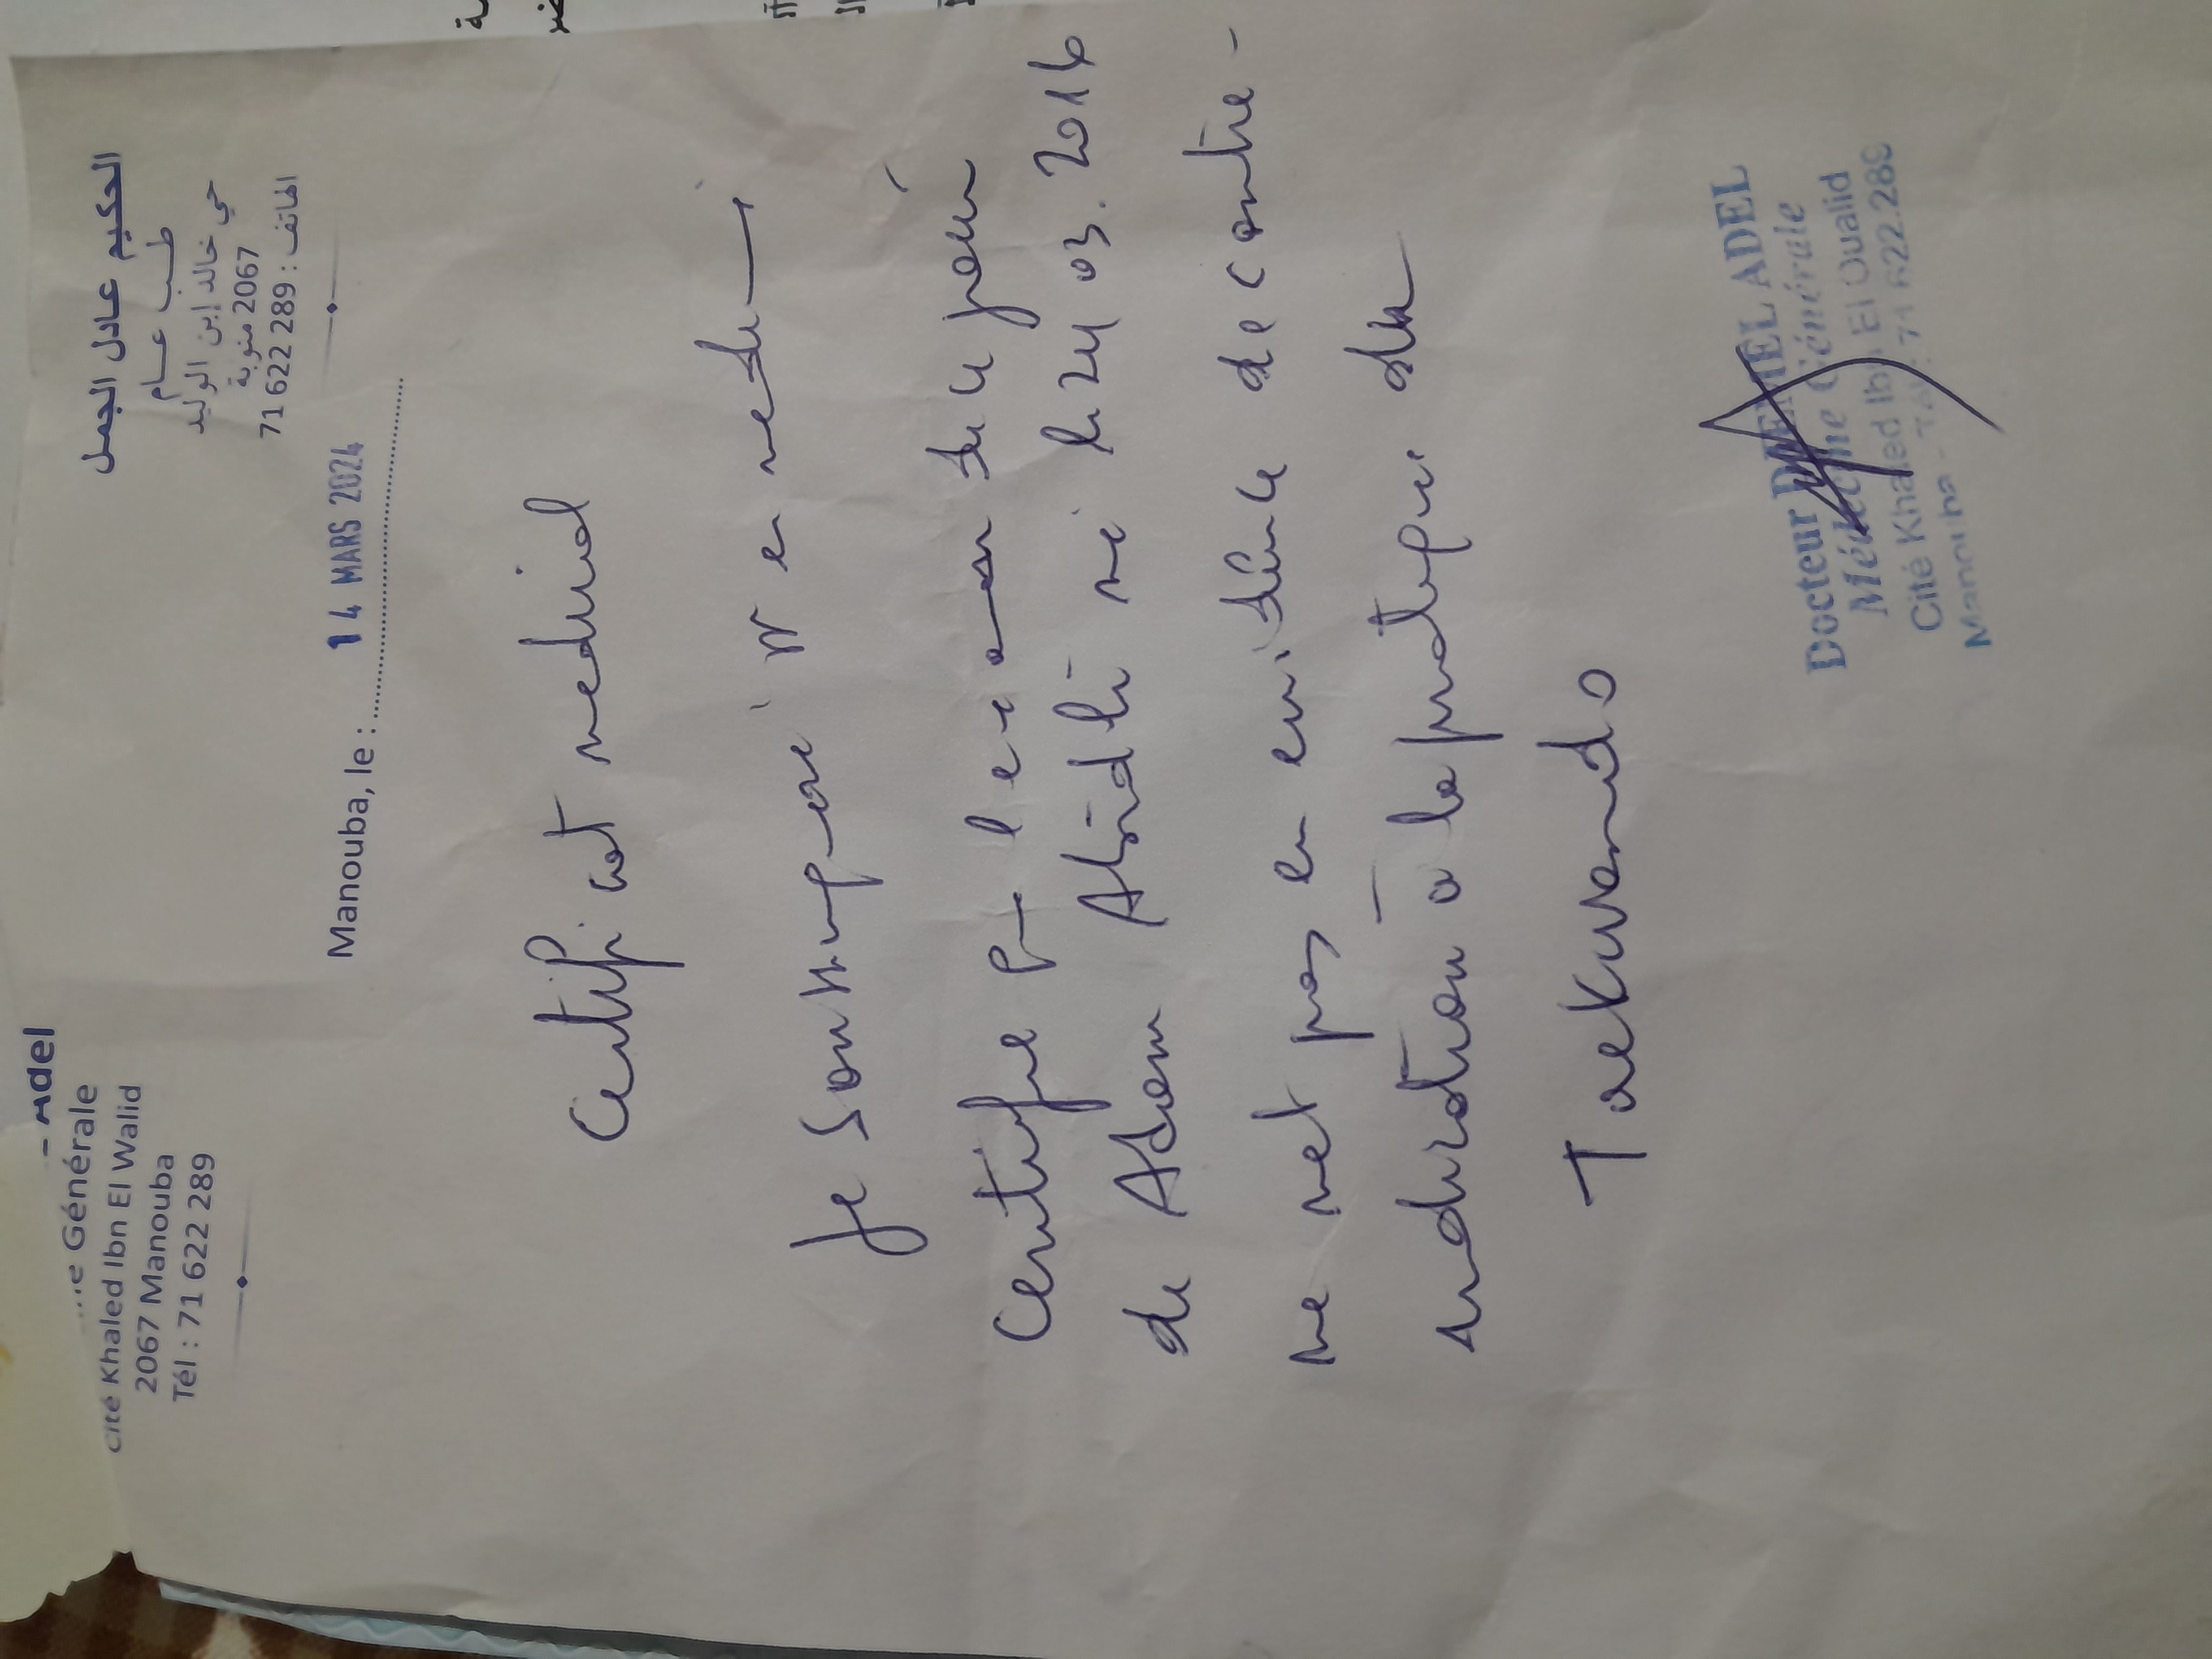 Adel
Générale
Cité Khaled Ibn El Walid
2067 Manouba
Tél : 71 622 289
الحكيم عادل الجمل
طب عام
حي خالد إبن الوليد
2067 منوبة
الهاتف : 289 622 71
Manouba, le : 14 MARS 2024
Certificat medical
Je soussigné
Certifie que l'examen de ce jour
de Adam né le 24 03. 2016
ne met pas en évidence de contre-
indication à la pratique du
Taekwando
Docteur DJEMEL ADEL
Médecine Générale
Cité Khaled Ibn El Oualid
Manouba - Tél : 71 622.289